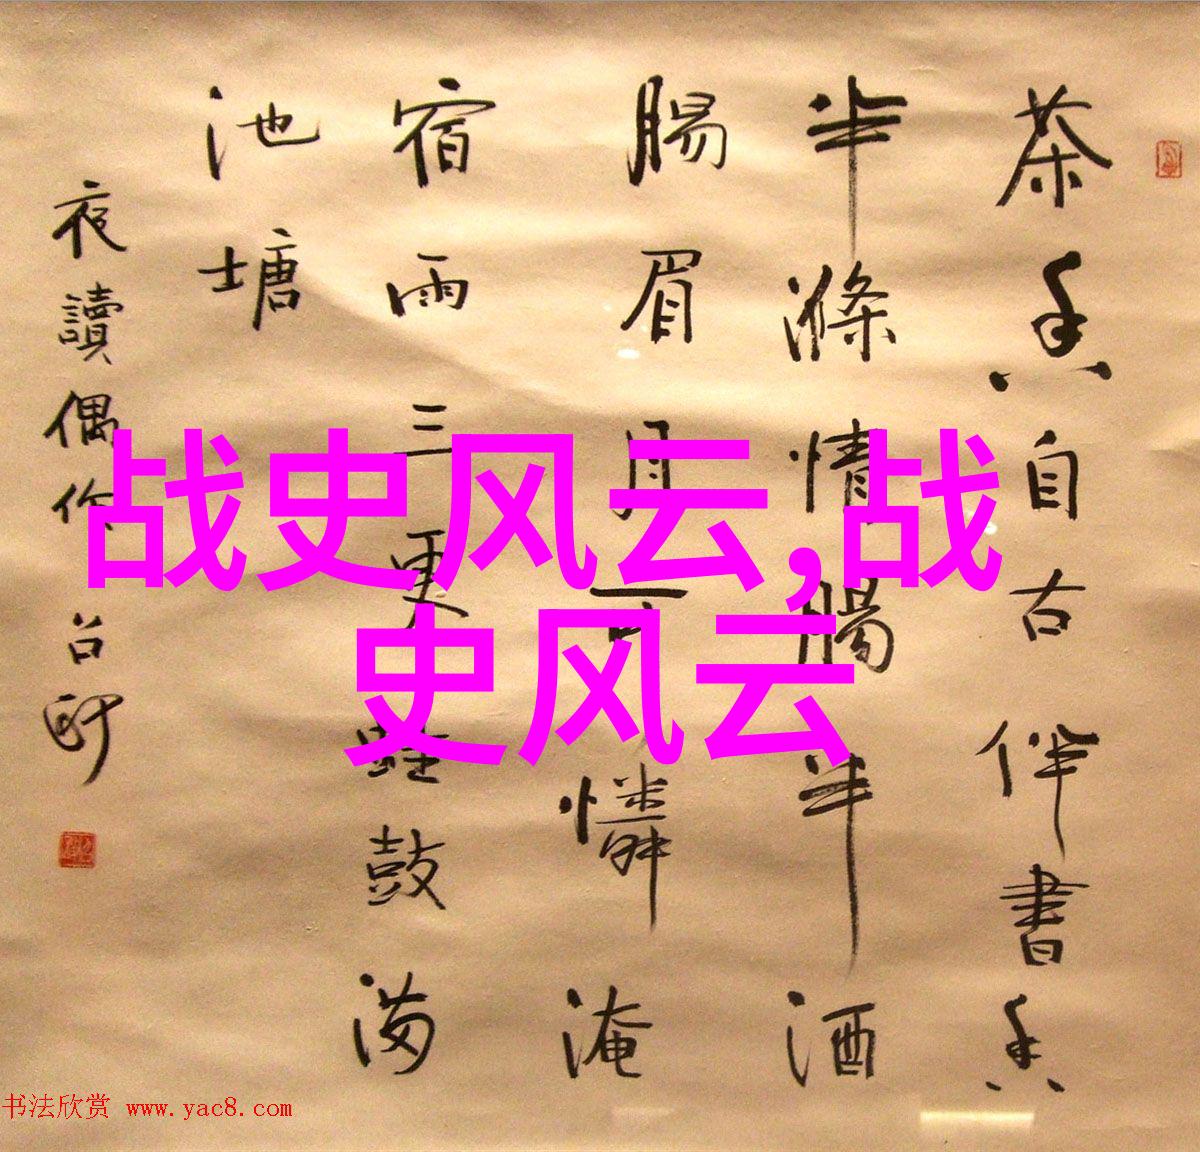 茶香自古伴書香
半滌情腸半酒
腸眉月可憐淹
宿雨三更蛙鼓满
池塘
夜讀偶作
战史风云,战
史风云
书法欣赏 www.yac8.com